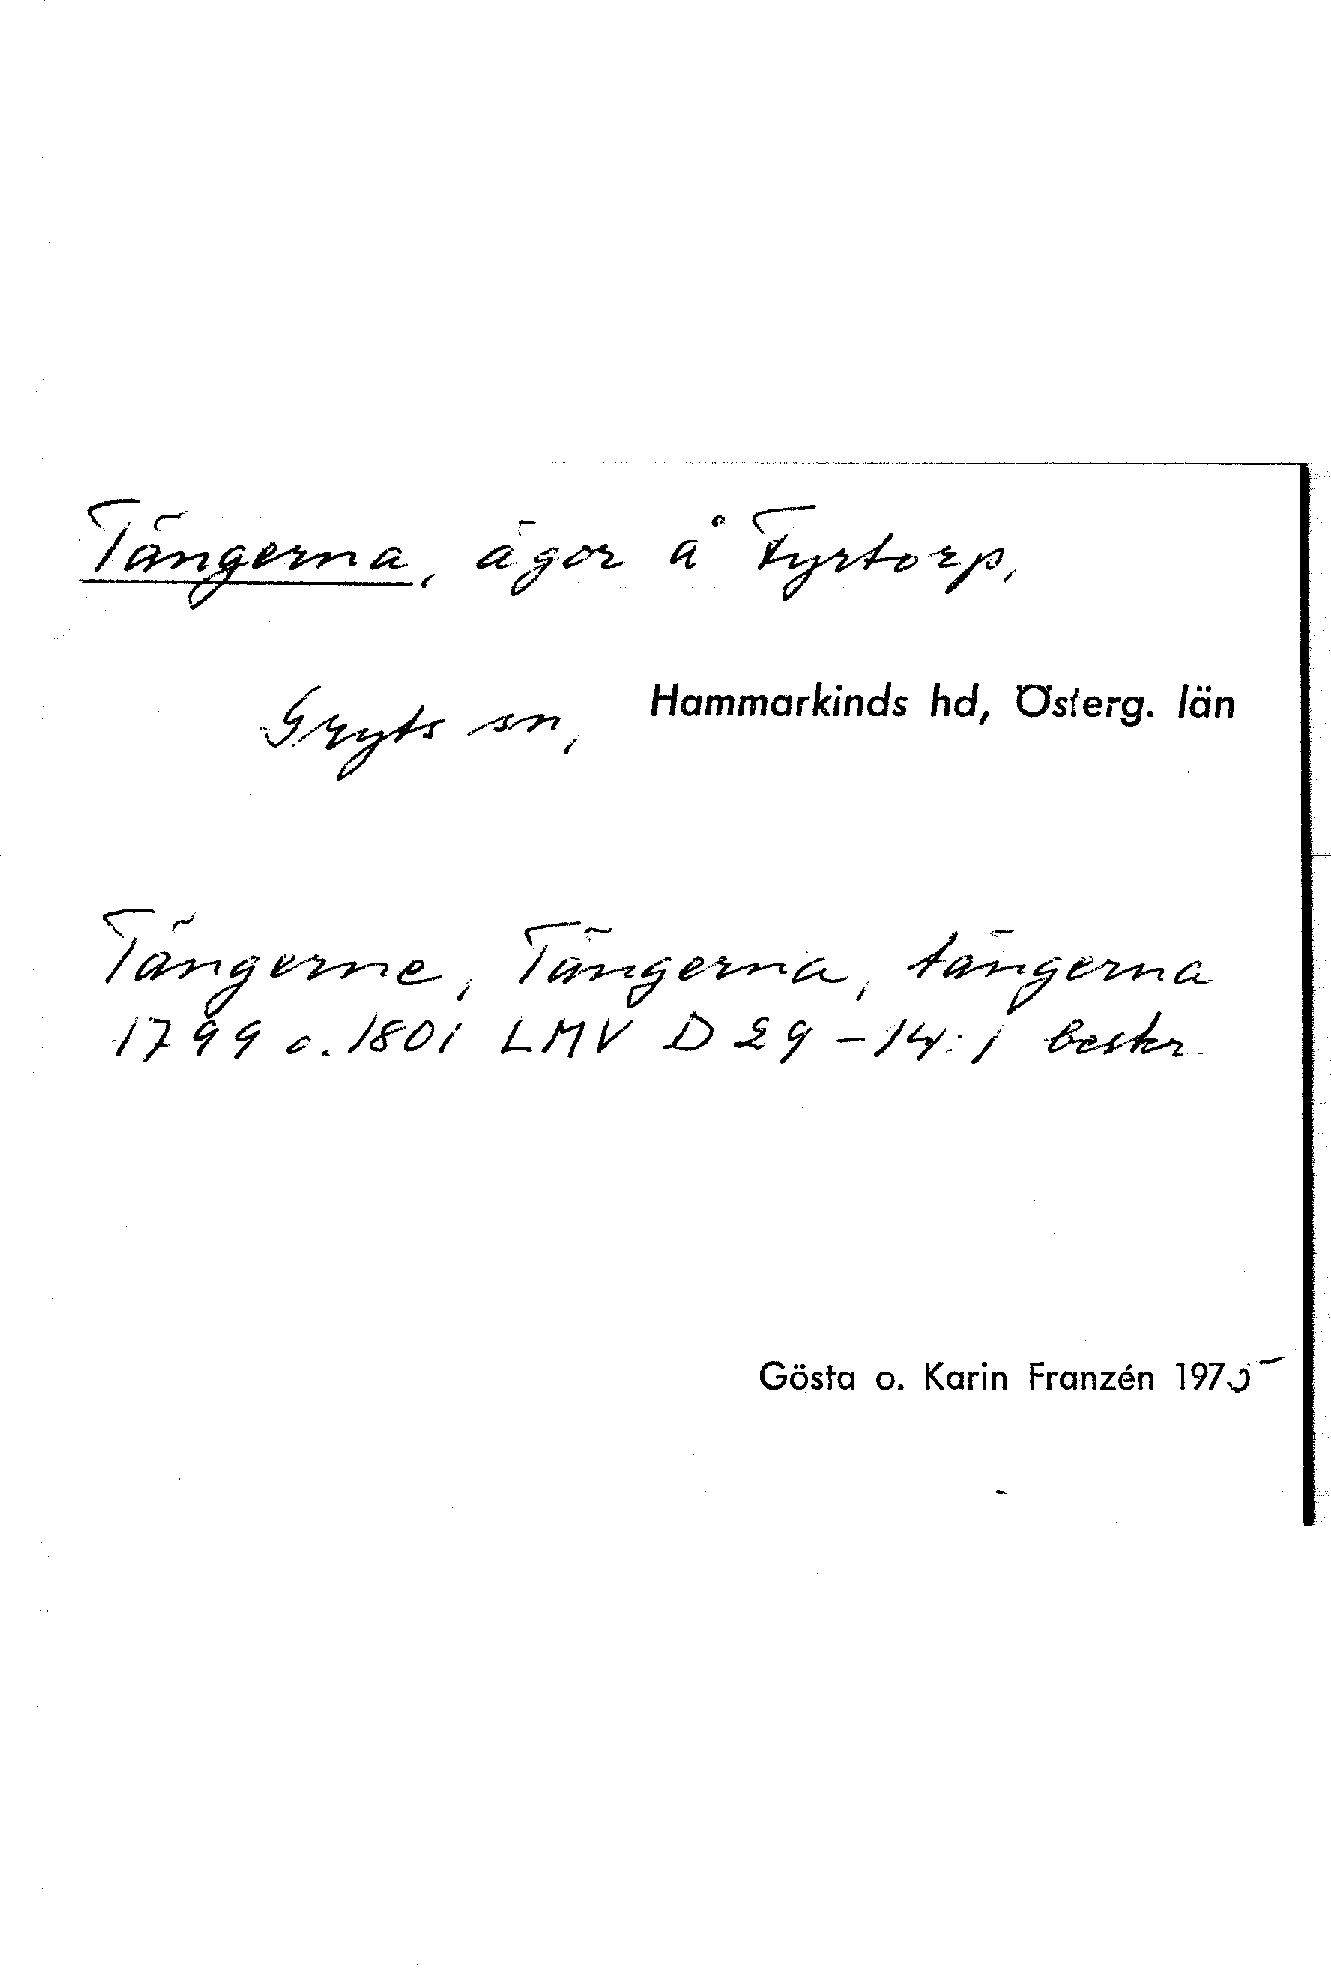 Tängerna, ägor å Fyrtorp,
Gryts sn, Hammarkinds hd, Österg. län
Tängerne, Tängerna, tängerna
1799 o. 1801 LMV D 29-14:1 beskr.
Gösta o. Karin Franzén 1975